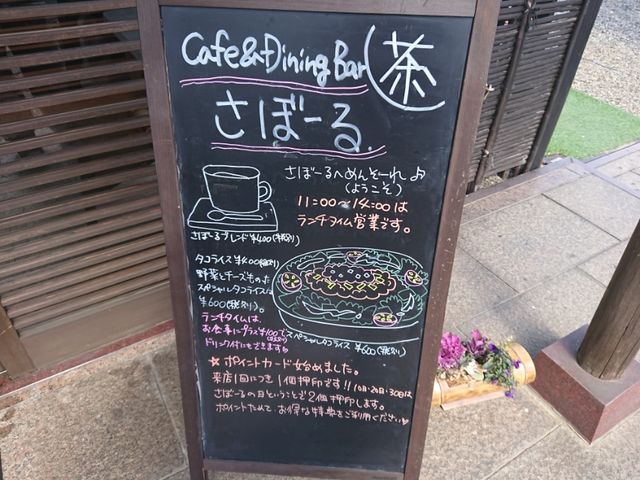 Cafe&Dining Bar
茶
さぼーる.
さぼーるへめんそーれ♪
(ようこそ)
11:00~14:00は
ランチタイム営業です。
さぼーるブレンド¥400(税別)
タコライス¥400(税別)
野菜とチーズものた
スペシャルタコライスは
¥600(税別)。
ランチタイムは、
お食事にプラス¥100で
ドリンク付にもできます
スペシャルタコライス ¥600(税別)
★ポイントカード始めました。
来店1回につき1個押印です!!10日・20日・30日は
さぼーるの日ということで2個押印します。
ポイントためて お得な特典をご利用ください♡